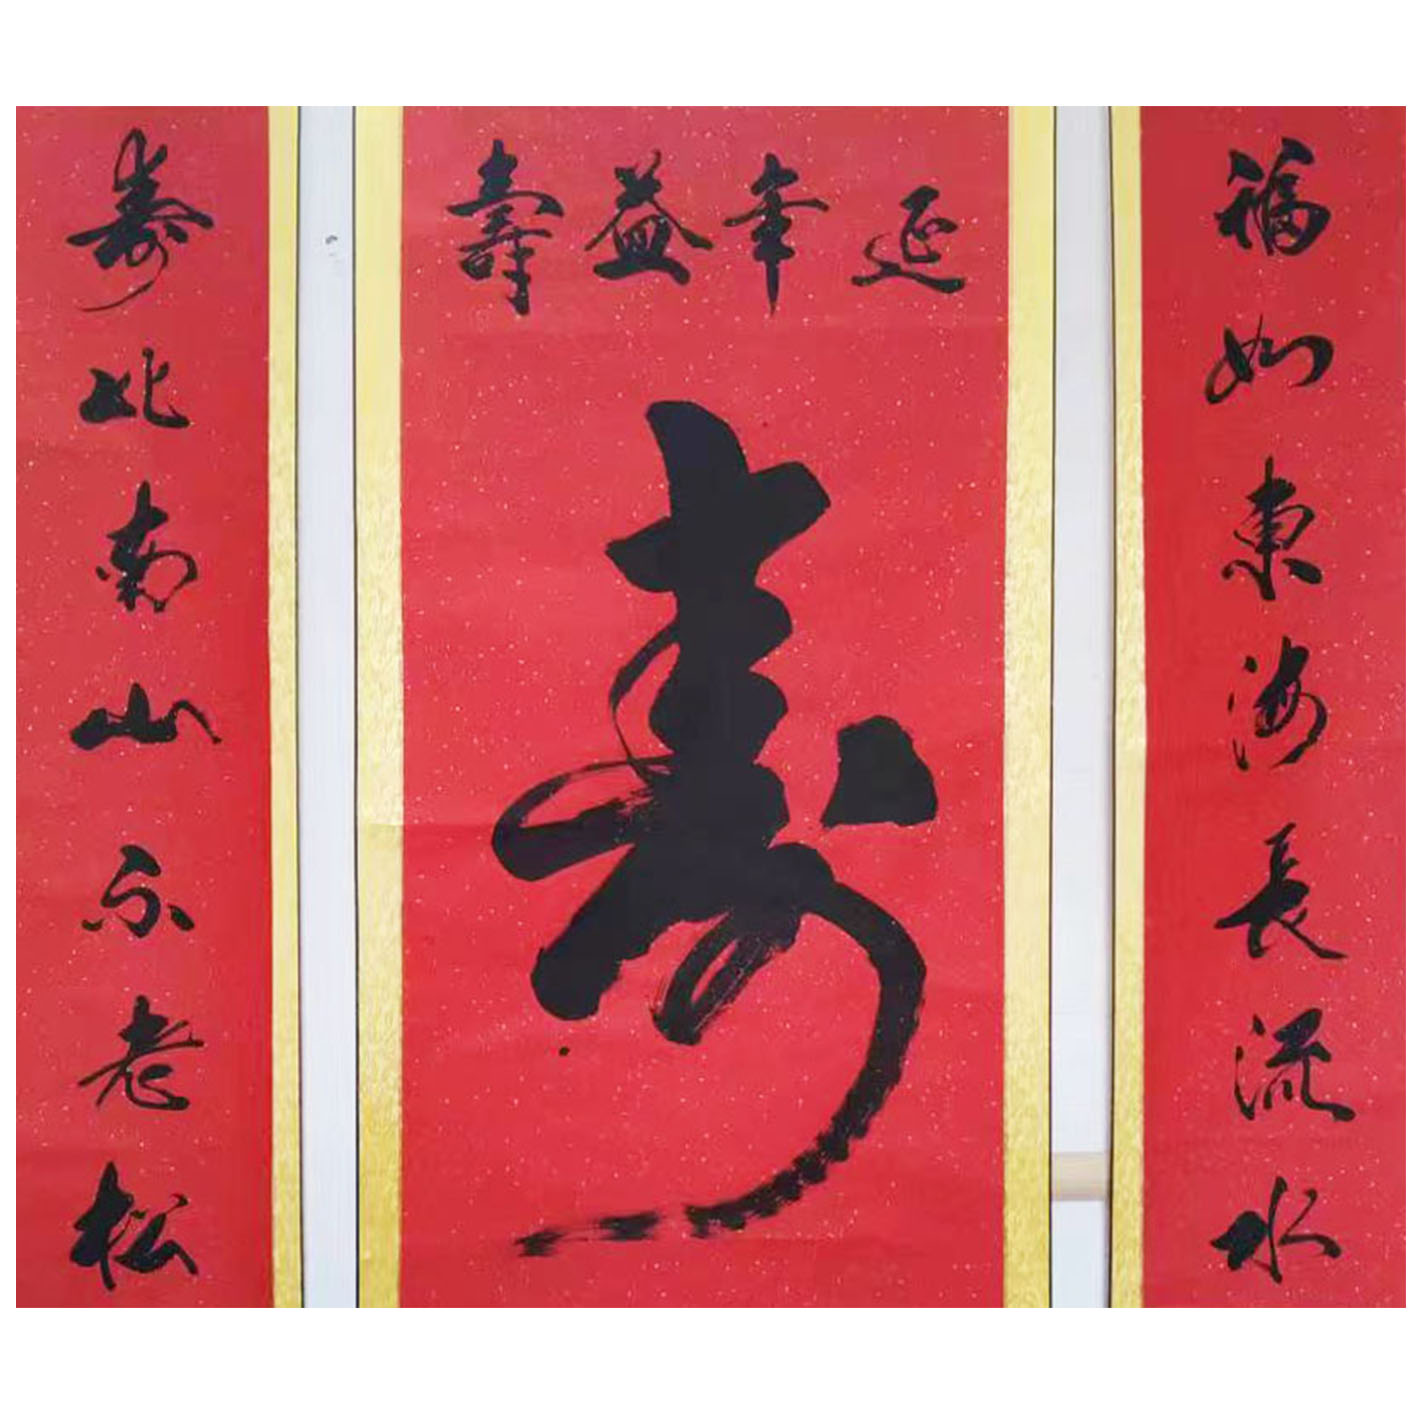 福如東海長流水
延年益壽
寿
寿比南山不老松